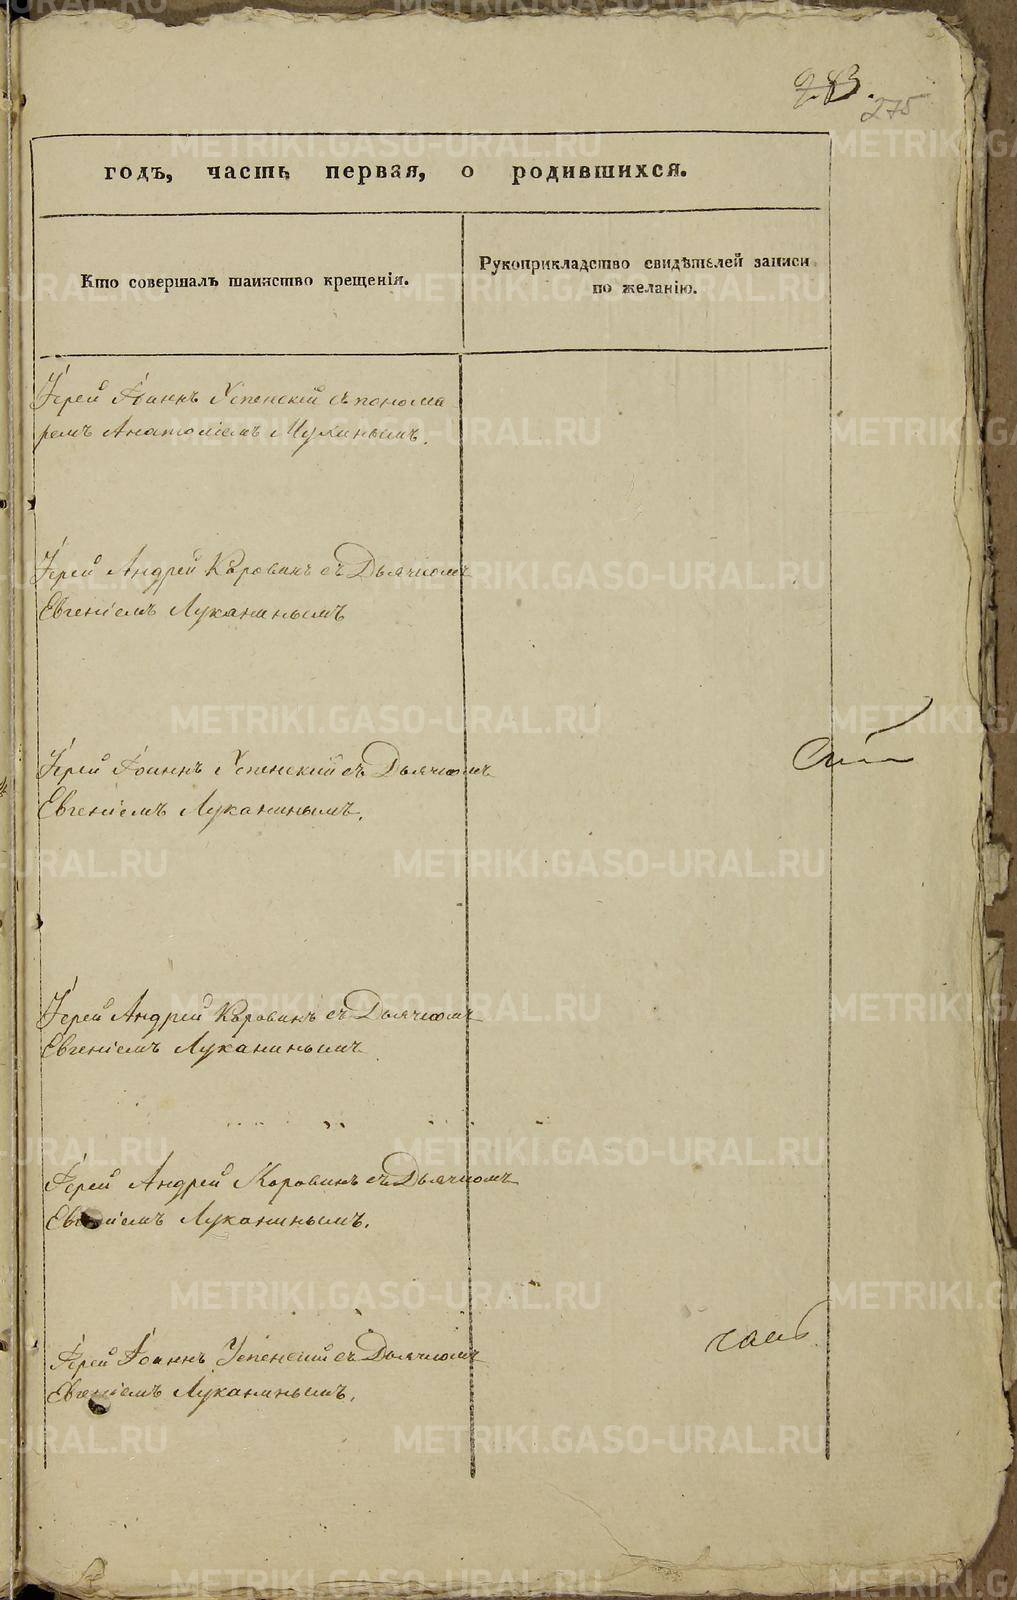 283.
275
годъ, часть первая, о родившихся.
Кто совершалъ таинство крещенія.
Рукоприкладство свидѣтелей записи
по желанію.
Іерей Іоаннъ Успенскій съ понома
ремъ Анатоліемъ
Іерей Андрей Коровинъ съ Дьячкомъ
Евгеніемъ Луканинымъ
Іерей Іоаннъ Успенскій съ Дьячкомъ
Евгеніемъ Луканинымъ.
Іерей Андрей Коровинъ съ Дьячкомъ
Евгеніемъ Луканинымъ
Іерей Андрей Коровинъ съ Дьячкомъ
Евгеніемъ Луканинымъ.
Іерей Іоаннъ Успенскій съ Дьячкомъ
Евгеніемъ Луканинымъ.
METRIKI.GASO-URAL.RU